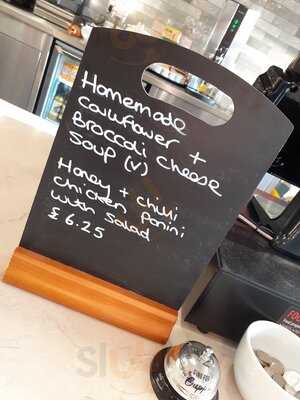 Homemade
cauliflower +
Broccoli cheese
Soup (v)
Honey + chilli
chicken panini
with salad
£6.25